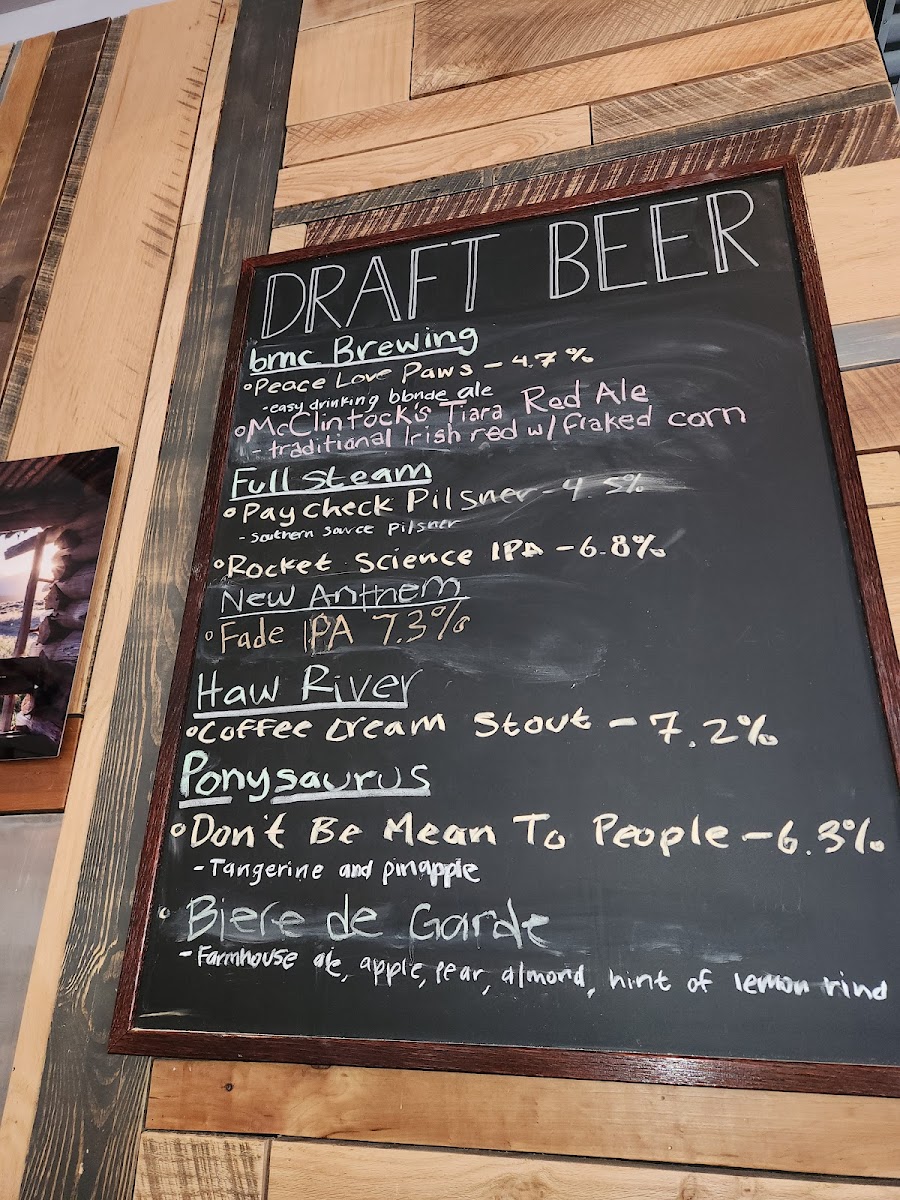 DRAFT BEER
bmc Brewing
°Peace Love Paws - 4.7%
-easy drinking blonde ale
°McClintock's Tiara Red Ale
- traditional Irish red w/ flaked corn
Full steam
°Paycheck Pilsner - 4.5%
- Southern Savce Pilsner
°Rocket Science IPA - 6.8%
New Anthem
°Fade IPA 7.3%
Haw River
°Coffee Cream Stout - 7.2%
Ponysaurus
°Don't Be Mean To People - 6.3%
- Tangerine and pinapple
°Biere de Garde
- Farmhouse ale, apple, pear, almond, hint of lemon rind